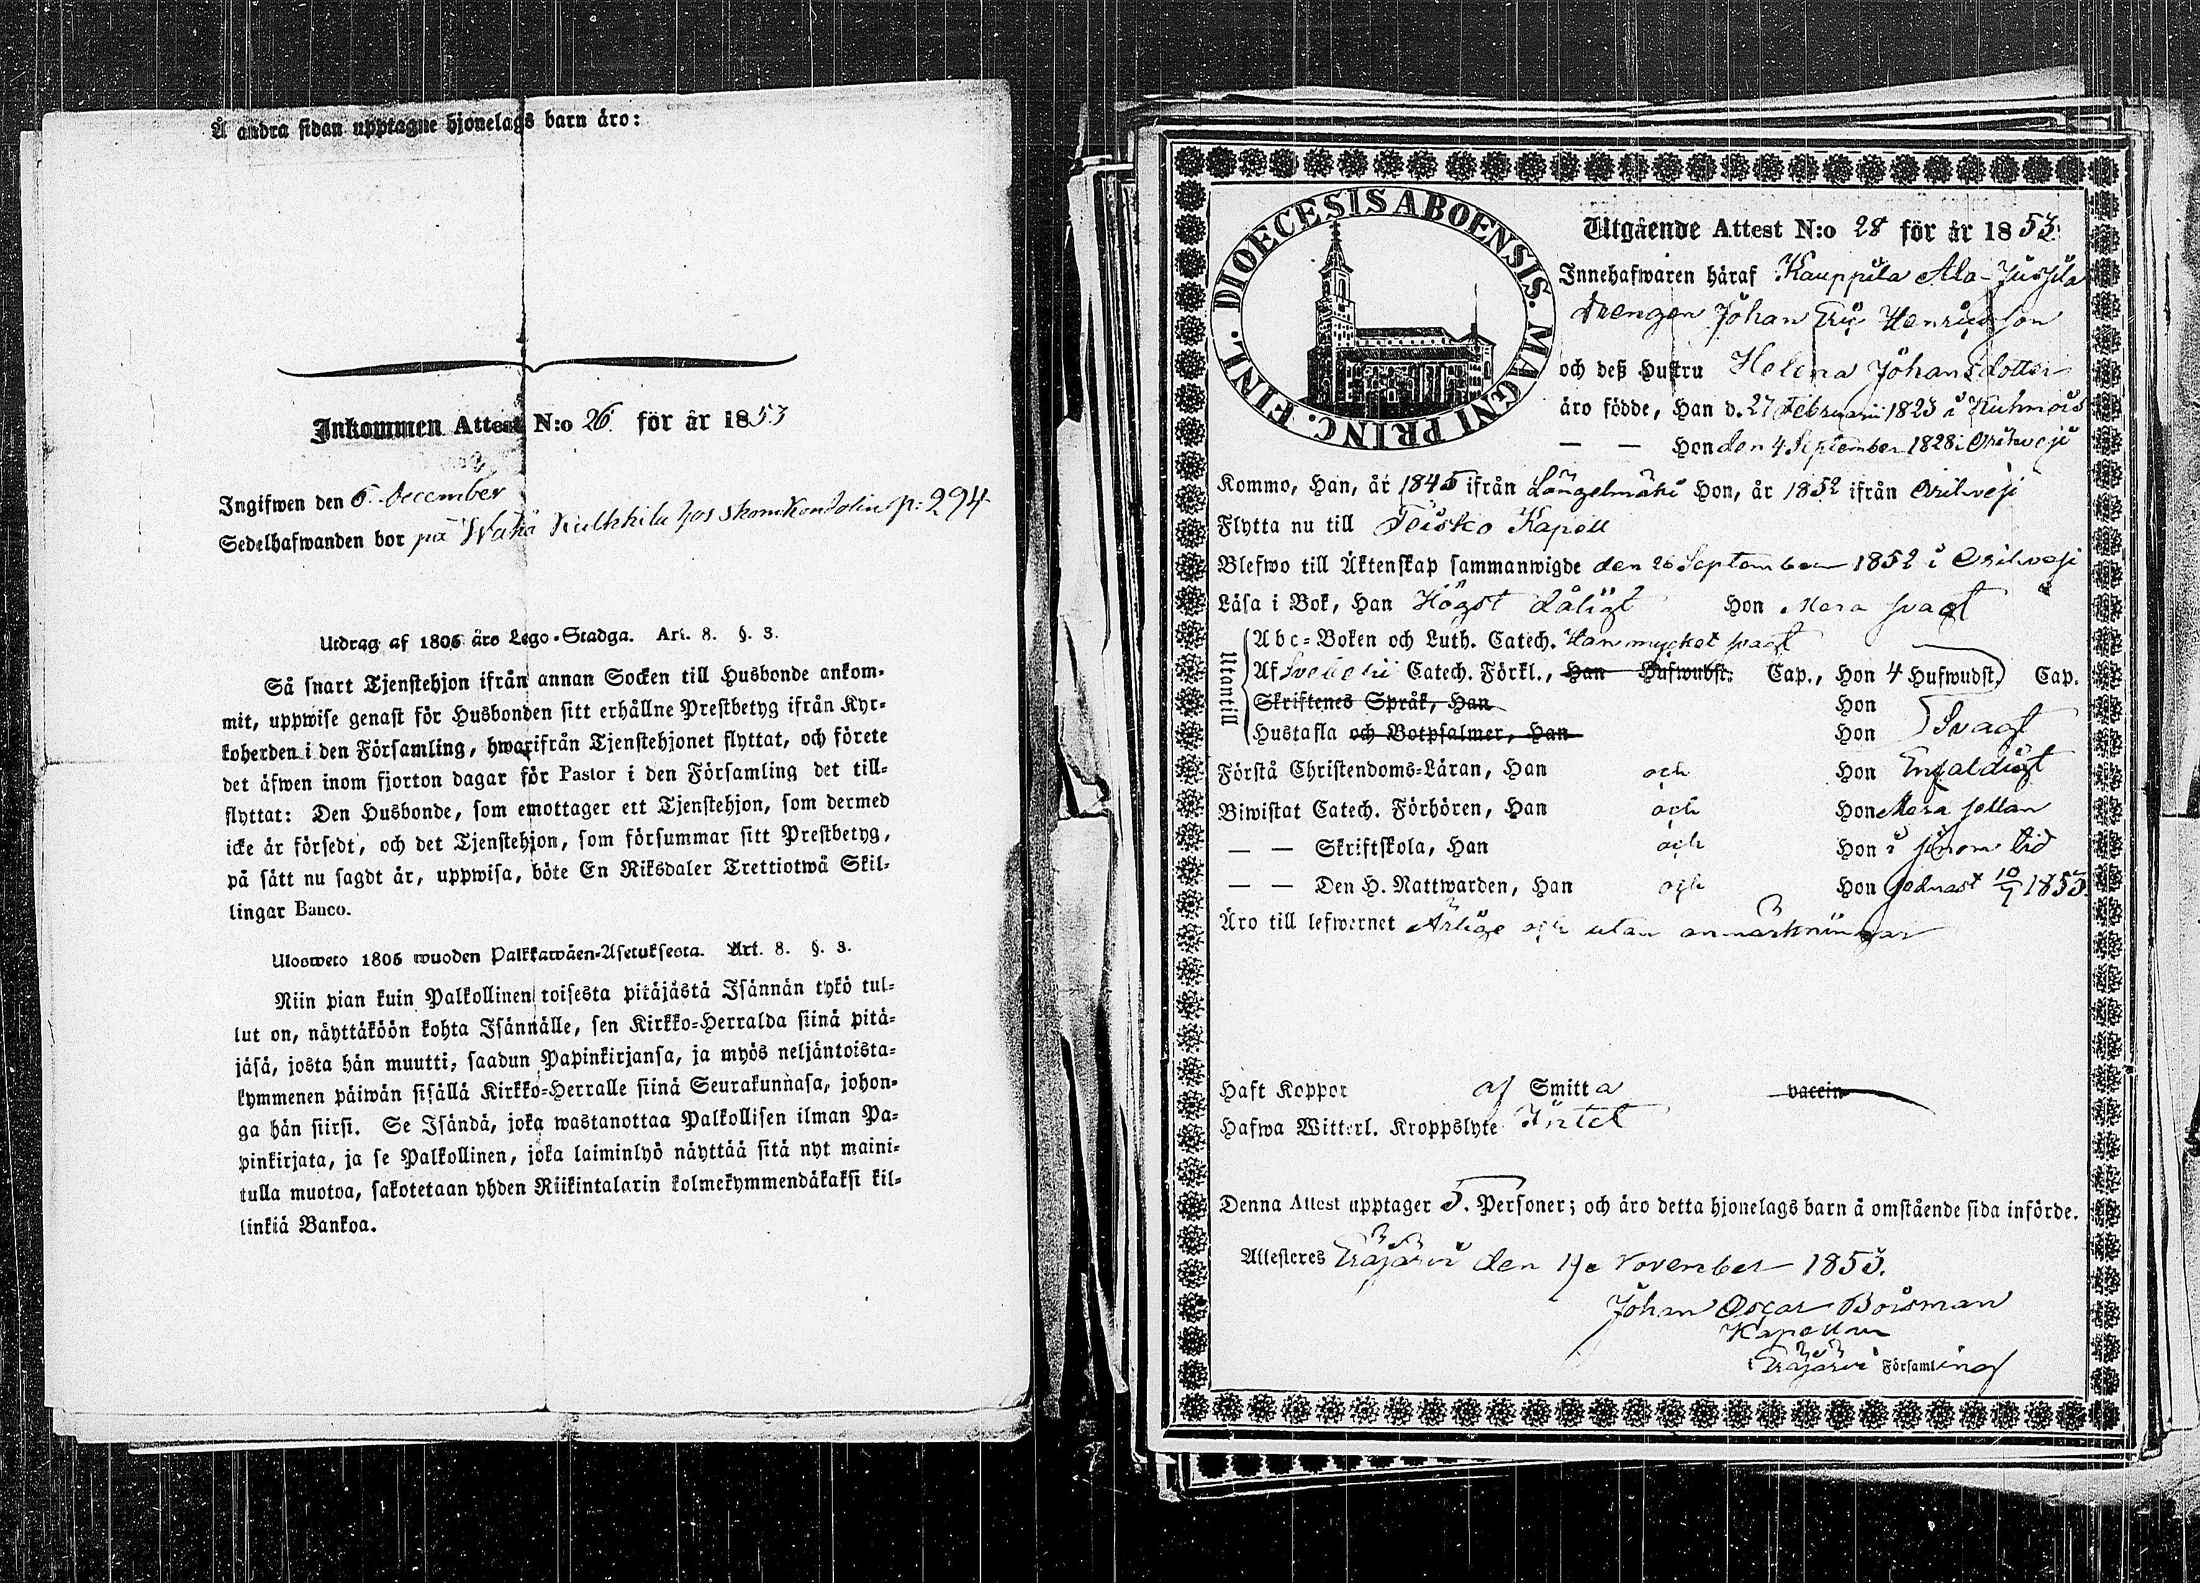 Å andra sidan upptagne hjonelags barn äro:
Inkommen Attest N:o 26. för år 1853
Ingifwen den 6. december
Sedelhafwanden bor på Waha Kulkkila hos skom Kondolin p: 294
Utdrag af 1805 års Lego-Stadga. Art. 8. §. 3.
Så snart Tjenstehjon ifrån annan Socken till Husbonde ankom-
mit, uppwise genast för Husbonden sitt erhållne Prestbetyg ifrån Kyr-
koherden i den Församling, hwarifrån Tjenstehjonet flyttat, och förete
det äfwen inom fjorton dagar för Pastor i den Församling det till-
flyttat: Den Husbonde, som emottager ett Tjenstehjon, som dermed
icke är försedt, och det Tjenstehjon, som försummar sitt Prestbetyg,
på sätt nu sagdt är, uppwisa, böte En Riksdaler Trettiotwå Skil-
lingar Banco.
Ulosweto 1805 wuoden Palkkawäen-Asetuksesta. Art. 8. §. 3.
Niin pian kuin Palkollinen toisesta pitäjästä Isännän tykö tul-
lut on, näyttäköön kohta Isännälle, sen Kirkko-Herralda siinä pitä-
jäsä, josta hän muutti, saadun Papinkirjansa, ja myös neljäntoista-
kymmenen päiwän sisällä Kirkko-Herralle siinä Seurakunnasa, johon-
ga hän siirsi. Se Isändä, joka wastanottaa Palkollisen ilman Pa-
pinkirjata, ja se Palkollinen, joka laiminlyö näyttää sitä nyt maini-
tulla muotoa, sakotetaan yhden Riikintalarin kolmekymmendäkaksi kil-
linkiä Bankoa.
DIOECESIS ABOENSIS. MAGNI PRINC. FINL.
Utgående Attest N:o 28 för år 1853.
Innehafwaren häraf Kauppila Ala-Jussila
drengen Johan Erik Henricsson
och deß Hustru Helena Johansdotter
äro födde, Han d. 27 Februari 1823 i Kuhmois
— — Hon den 4 September 1828 i Orihvesi
Kommo, Han, år 1845 ifrån Längelmäki Hon, år 1852 ifrån Orihvesi
Flytta nu till Teisko Kapell
Blefwo till Äktenskap sammanwigde den 26 September 1852 i Orihvesi
Läsa i Bok, Han Högst dåligt Hon Mera svagt
Utantill
Abc-Boken och Luth. Catech. Han mycket svagt
Af Svebelii Catech. Förkl., Han Hufwudst. Cap., Hon 4 Hufwudst. Cap.
Skriftenes Språk, Han Hon
Hustafla och Botpsalmer, Han Hon Svagt
Förstå Christendoms-Läran, Han och Hon Enfaldigt
Biwistat Catech. Förhören, Han och Hon Mera sällan
— — Skriftskola, Han och Hon i sinom tid
— — Den H. Nattwarden, Han och Hon sednast 10/7 1853.
Äro till lefwernet Ärlige och utan anmärkningar
Haft Koppor af Smitta vaccin
Hafwa Witterl. Kroppslyte Intet
Denna Attest upptager 3. Personer; och äro detta hjonelags barn å omstående sida införde.
Attesteres Eräjärvi den 19 November 1853.
Johan Oscar Boisman
Kapellan
i Eräjärvi Församling